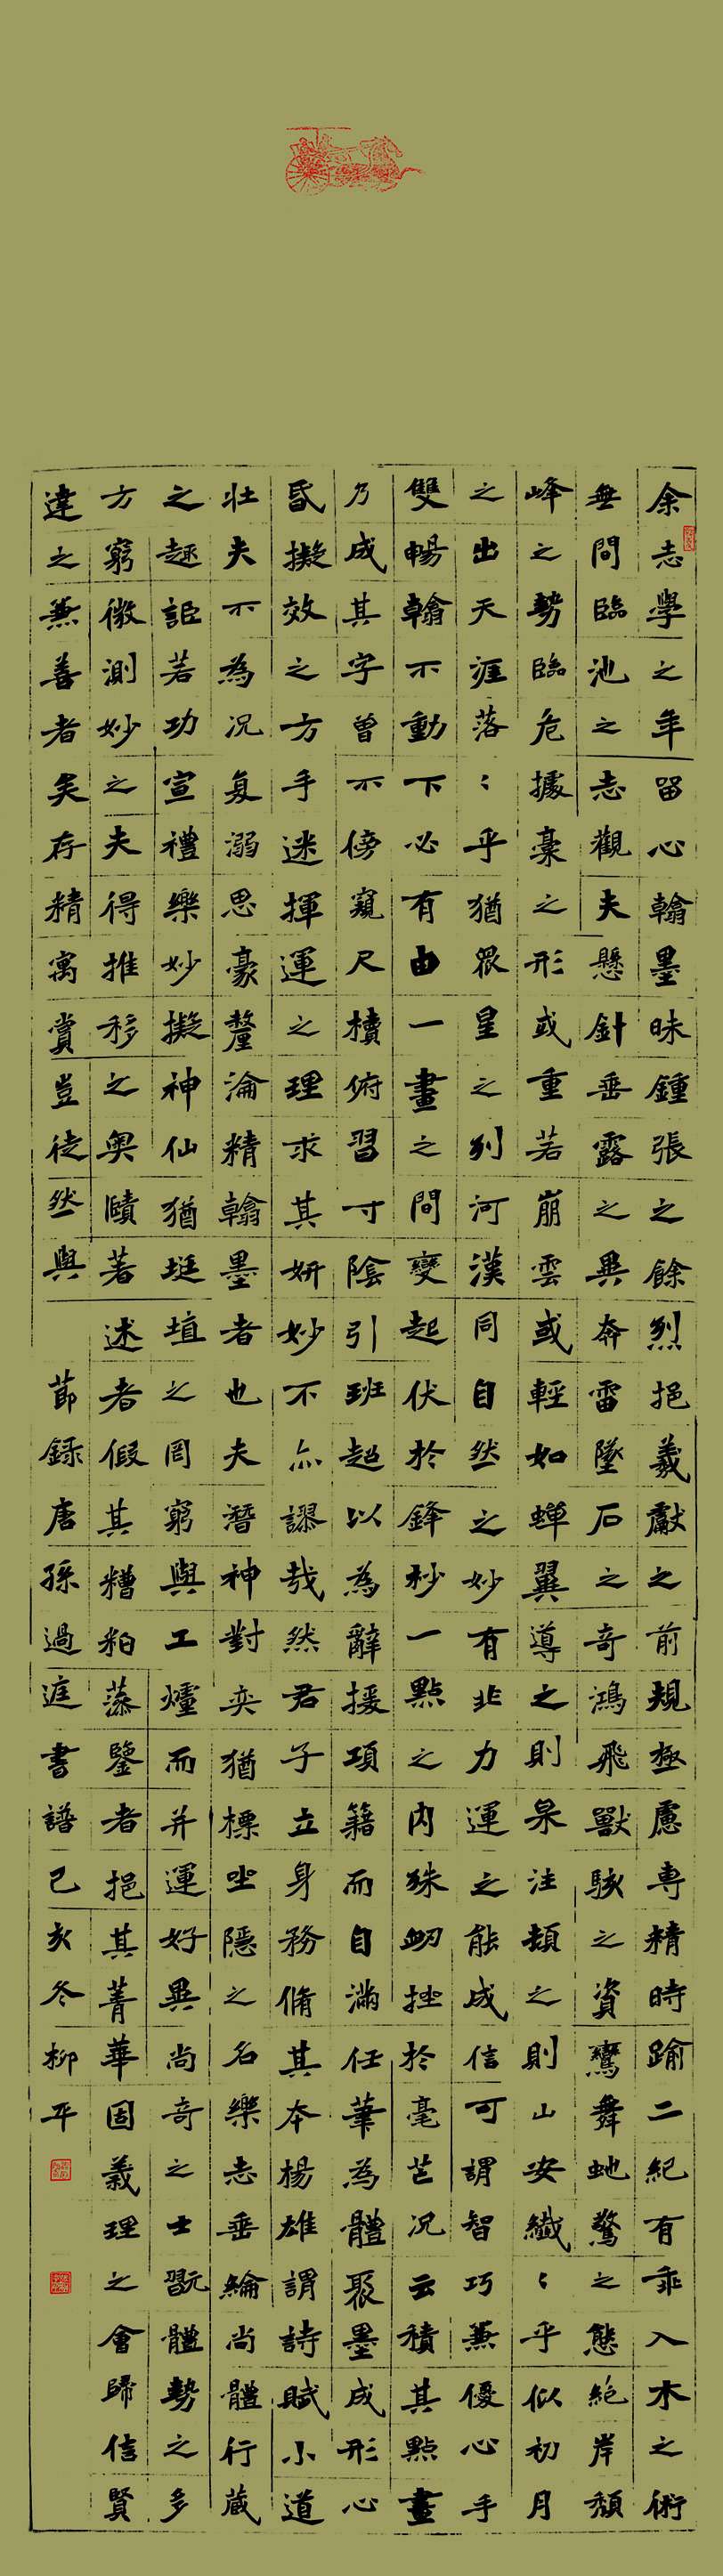 余志學之年留心翰墨味鍾張之餘烈挹羲獻之前規極慮專精時踰二紀有乖入木之術
無間臨池之志觀夫懸針垂露之異奔雷墜石之奇鴻飛獸駭之資鸞舞虵驚之態絕岸頹
峰之勢臨危據槀之形或重若崩雲或輕如蟬翼導之則泉注頓之則山安纖〻乎似初月
之出天涯落〻乎猶衆星之列河漢同自然之妙有非力運之能成信可謂智巧兼優心手
雙暢翰不動下必有由一畫之間變起伏於鋒杪一點之內殊衄挫於毫芒況云積其點畫
乃成其字曾不傍窺尺牘俯習寸陰引班超以為辭援項籍而自滿任筆為體聚墨成形心
昏擬效之方手迷揮運之理求其妍妙不亦謬哉然君子立身務脩其本楊雄謂詩賦小道
壯夫不為況复溺思豪釐淪精翰墨者也夫潛神對奕猶標坐隱之名樂志垂綸尚體行藏
之趣詎若功宣禮樂妙擬神仙猶埏埴之罔窮與工爐而并運好異尚奇之士翫體勢之多
方窮微測妙之夫得推移之奧賾著述者假其糟粕藻鑒者挹其菁華固義理之會歸信賢
達之兼善者矣存精寓賞豈徒然與 節錄唐孫過庭書譜己亥冬柳平